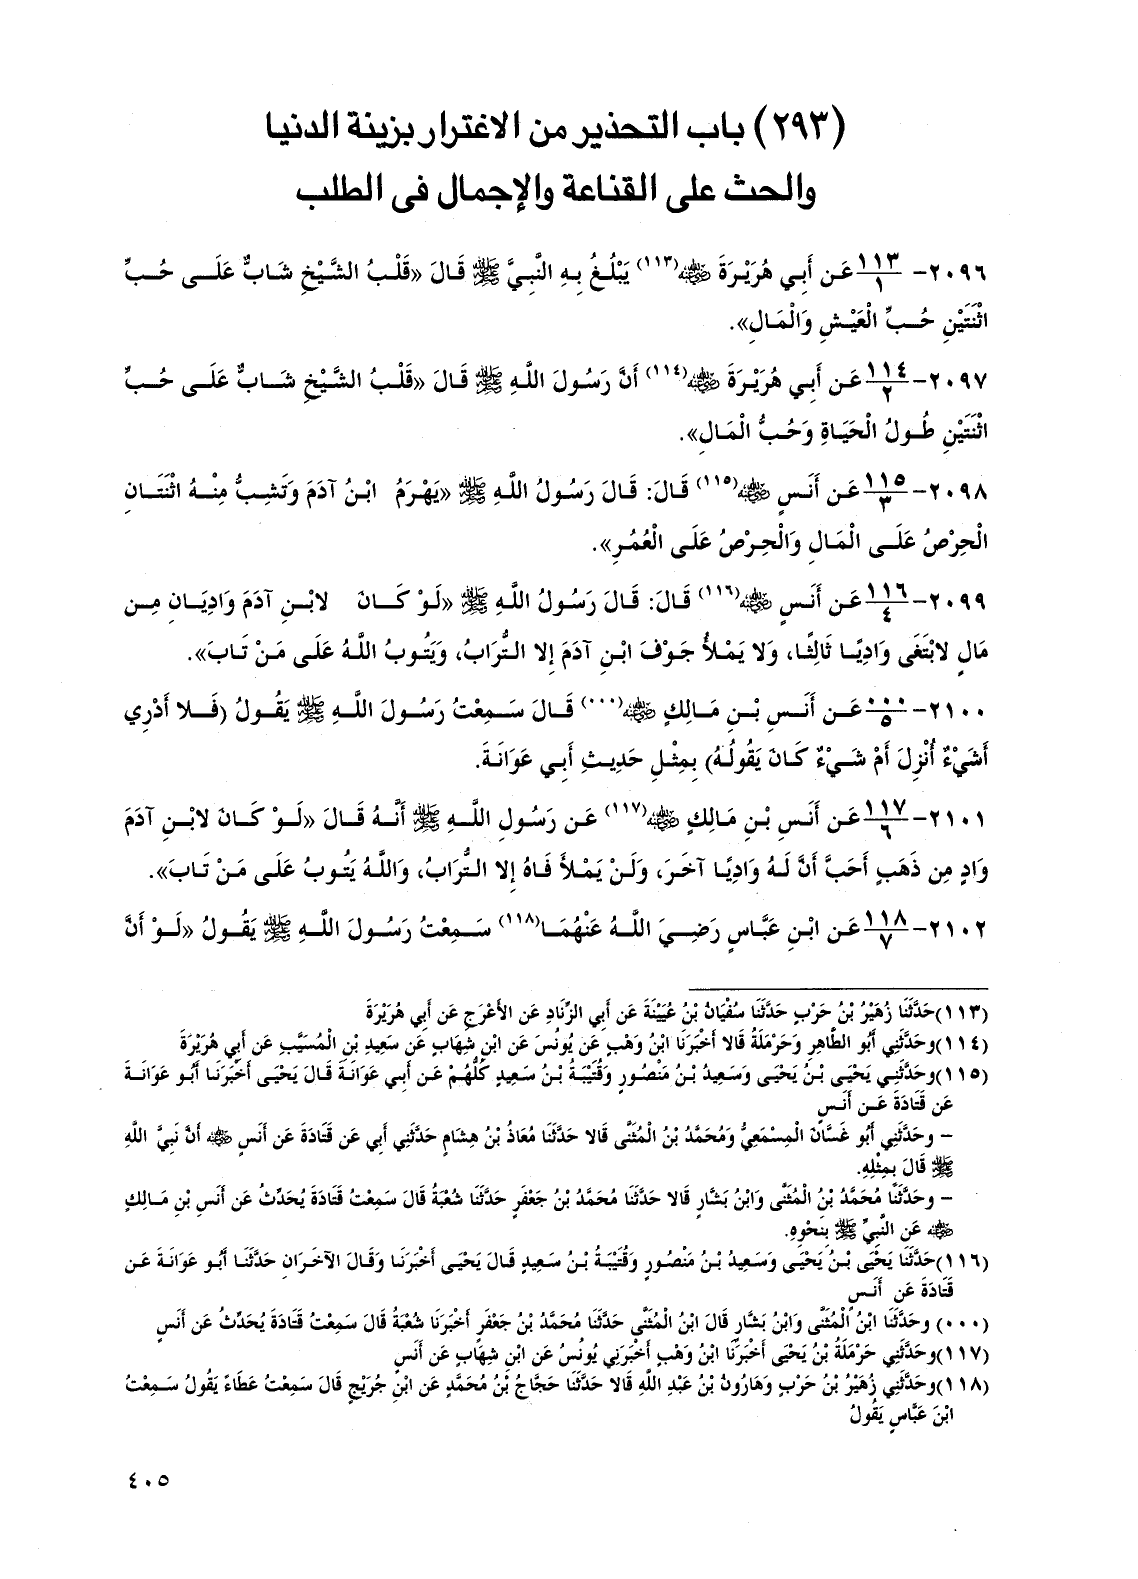 (٢٩٣) باب التحذير من الاغترار بزينة الدنيا
والحث على القناعة والإجمال فى الطلب
٢٠٩٦- ١١٣/١ عَن أَبِي هُرَيْرَةَ ﷺ(١١٣) يَبْلُغُ بِهِ النَّبِيَّ ﷺ قَالَ «قَلْبُ الشَّيْخِ شَابٌّ عَلَى حُبِّ
اثْنَتَيْنِ حُبِّ الْعَيْشِ وَالْمَالِ».
٢٠٩٧- ١١٤/٢ عَن أَبِي هُرَيْرَةَ رضي الله عنه(١١٤) أَنَّ رَسُولَ اللَّهِ ﷺ قَالَ «قَلْبُ الشَّيْخِ شَابٌّ عَلَى حُبِّ
اثْنَتَيْنِ طُولُ الْحَيَاةِ وَحُبُّ الْمَالِ».
٢٠٩٨- ١١٥/٣ عَن أَنَسٍ رضي الله عنه(١١٥) قَالَ: قَالَ رَسُولُ اللَّهِ ﷺ «يَهْرَمُ ابْنُ آدَمَ وَتَشِبُّ مِنْهُ اثْنَتَانِ
الْحِرْصُ عَلَى الْمَالِ وَالْحِرْصُ عَلَى الْعُمُرِ».
٢٠٩٩- ١١٦/٤ عَن أَنَسٍ رضي الله عنه(١١٦) قَالَ: قَالَ رَسُولُ اللَّهِ ﷺ «لَوْ كَانَ لابْنِ آدَمَ وَادِيَانِ مِن
مَالٍ لابْتَغَى وَادِيًا ثَالِثًا، وَلا يَمْلأُ جَوْفَ ابْنِ آدَمَ إلا التُّرَابُ، وَيَتُوبُ اللَّهُ عَلَى مَنْ تَابَ».
٢١٠٠- ٠٠٠/٥ عَن أَنَسِ بْنِ مَالِكٍ رضي الله عنه(٠٠٠) قَالَ سَمِعْتُ رَسُولَ اللَّهِ ﷺ يَقُولُ (فَلا أَدْرِي
أَشَيْءٌ أُنْزِلَ أَمْ شَيْءٌ كَانَ يَقُولُهُ) بِمِثْلِ حَدِيثِ أَبِي عَوَانَةَ.
٢١٠١- ١١٧/٦ عَن أَنَسِ بْنِ مَالِكٍ رضي الله عنه(١١٧) عَن رَسُولِ اللَّهِ ﷺ أَنَّهُ قَالَ «لَوْ كَانَ لابْنِ آدَمَ
وَادٍ مِن ذَهَبٍ أَحَبَّ أَنَّ لَهُ وَادِيًا آخَرَ، وَلَنْ يَمْلأَ فَاهُ إلا التُّرَابُ، وَاللَّهُ يَتُوبُ عَلَى مَنْ تَابَ».
٢١٠٢- ١١٨/٧ عَن ابْنِ عَبَّاسٍ رَضِيَ اللَّهُ عَنْهُمَا(١١٨) سَمِعْتُ رَسُولَ اللَّهِ ﷺ يَقُولُ «لَوْ أَنَّ
(١١٣) حَدَّثَنَا زُهَيْرُ بْنُ حَرْبٍ حَدَّثَنَا سُفْيَانُ بْنُ عُيَيْنَةَ عَن أَبِي الزِّنَادِ عَن الأَعْرَجِ عَن أَبِي هُرَيْرَةَ
(١١٤) وحَدَّثَنِي أَبُو الطَّاهِرِ وَحَرْمَلَةُ قَالا أَخْبَرَنَا ابْنُ وَهْبٍ عَن يُونُسَ عَن ابْنِ شِهَابٍ عَن سَعِيدِ بْنِ الْمُسَيَّبِ عَن أَبِي هُرَيْرَةَ
(١١٥) وحَدَّثَنِي يَحْيَى بْنُ يَحْيَى وَسَعِيدُ بْنُ مَنْصُورٍ وَقُتَيْبَةُ بْنُ سَعِيدٍ كُلُّهُمْ عَن أَبِي عَوَانَةَ قَالَ يَحْيَى أَخْبَرَنَا أَبُو عَوَانَةَ
عَن قَتَادَةَ عَن أَنَسٍ
– وحَدَّثَنِي أَبُو غَسَّانَ الْمِسْمَعِيُّ وَمُحَمَّدُ بْنُ الْمُثَنَّى قَالا حَدَّثَنَا مُعَاذُ بْنُ هِشَامٍ حَدَّثَنِي أَبِي عَن قَتَادَةَ عَن أَنَسٍ رضي الله عنه أَنَّ نَبِيَّ اللَّهِ
ﷺ قَالَ بِمِثْلِهِ.
– وحَدَّثَنَا مُحَمَّدُ بْنُ الْمُثَنَّى وَابْنُ بَشَّارٍ قَالا حَدَّثَنَا مُحَمَّدُ بْنُ جَعْفَرٍ حَدَّثَنَا شُعْبَةُ قَالَ سَمِعْتُ قَتَادَةَ يُحَدِّثُ عَن أَنَسِ بْنِ مَالِكٍ
رضي الله عنه عَن النَّبِيِّ ﷺ بِنَحْوِهِ.
(١١٦) حَدَّثَنَا يَحْيَى بْنُ يَحْيَى وَسَعِيدُ بْنُ مَنْصُورٍ وَقُتَيْبَةُ بْنُ سَعِيدٍ قَالَ يَحْيَى أَخْبَرَنَا وَقَالَ الآخَرَانِ حَدَّثَنَا أَبُو عَوَانَةَ عَن
قَتَادَةَ عَن أَنَسٍ
(٠٠٠) وحَدَّثَنَا ابْنُ الْمُثَنَّى وَابْنُ بَشَّارٍ قَالَ ابْنُ الْمُثَنَّى حَدَّثَنَا مُحَمَّدُ بْنُ جَعْفَرٍ أَخْبَرَنَا شُعْبَةُ قَالَ سَمِعْتُ قَتَادَةَ يُحَدِّثُ عَن أَنَسٍ
(١١٧) وحَدَّثَنِي حَرْمَلَةُ بْنُ يَحْيَى أَخْبَرَنَا ابْنُ وَهْبٍ أَخْبَرَنِي يُونُسُ عَن ابْنِ شِهَابٍ عَن أَنَسٍ
(١١٨) وحَدَّثَنِي زُهَيْرُ بْنُ حَرْبٍ وَهَارُونُ بْنُ عَبْدِ اللَّهِ قَالا حَدَّثَنَا حَجَّاجُ بْنُ مُحَمَّدٍ عَن ابْنِ جُرَيْجٍ قَالَ سَمِعْتُ عَطَاءً يَقُولُ سَمِعْتُ
ابْنَ عَبَّاسٍ يَقُولُ
٤٠٥